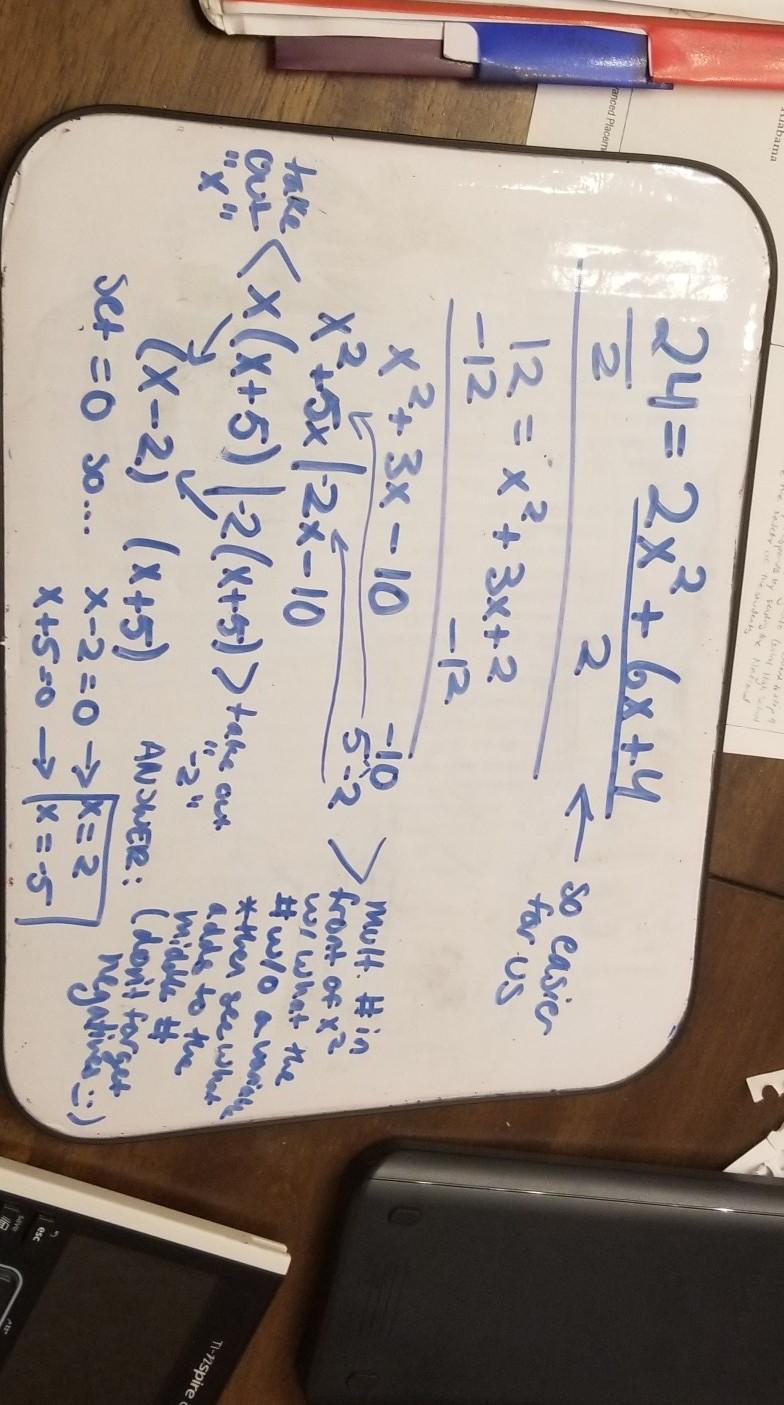 24 = 2x² + 6x + 4
2 2
← so easier
for us
12 = x² + 3x + 2
-12 -12
x² + 3x - 10
-10
5 -2
x² + 5x | -2x - 10
take
out
"x"
< x(x+5) | -2(x+5) > take out
"-2"
(x-2) (x+5)
set = 0 so... x-2=0 → x = 2
x+5=0 → x = -5
ANSWER:
> mult. # in
front of x²
w/ what the
# w/o a variable
*then see what
adds to the
middle #
(don't forget
negatives :)
abama
anced Placem
esc
TI-nspire